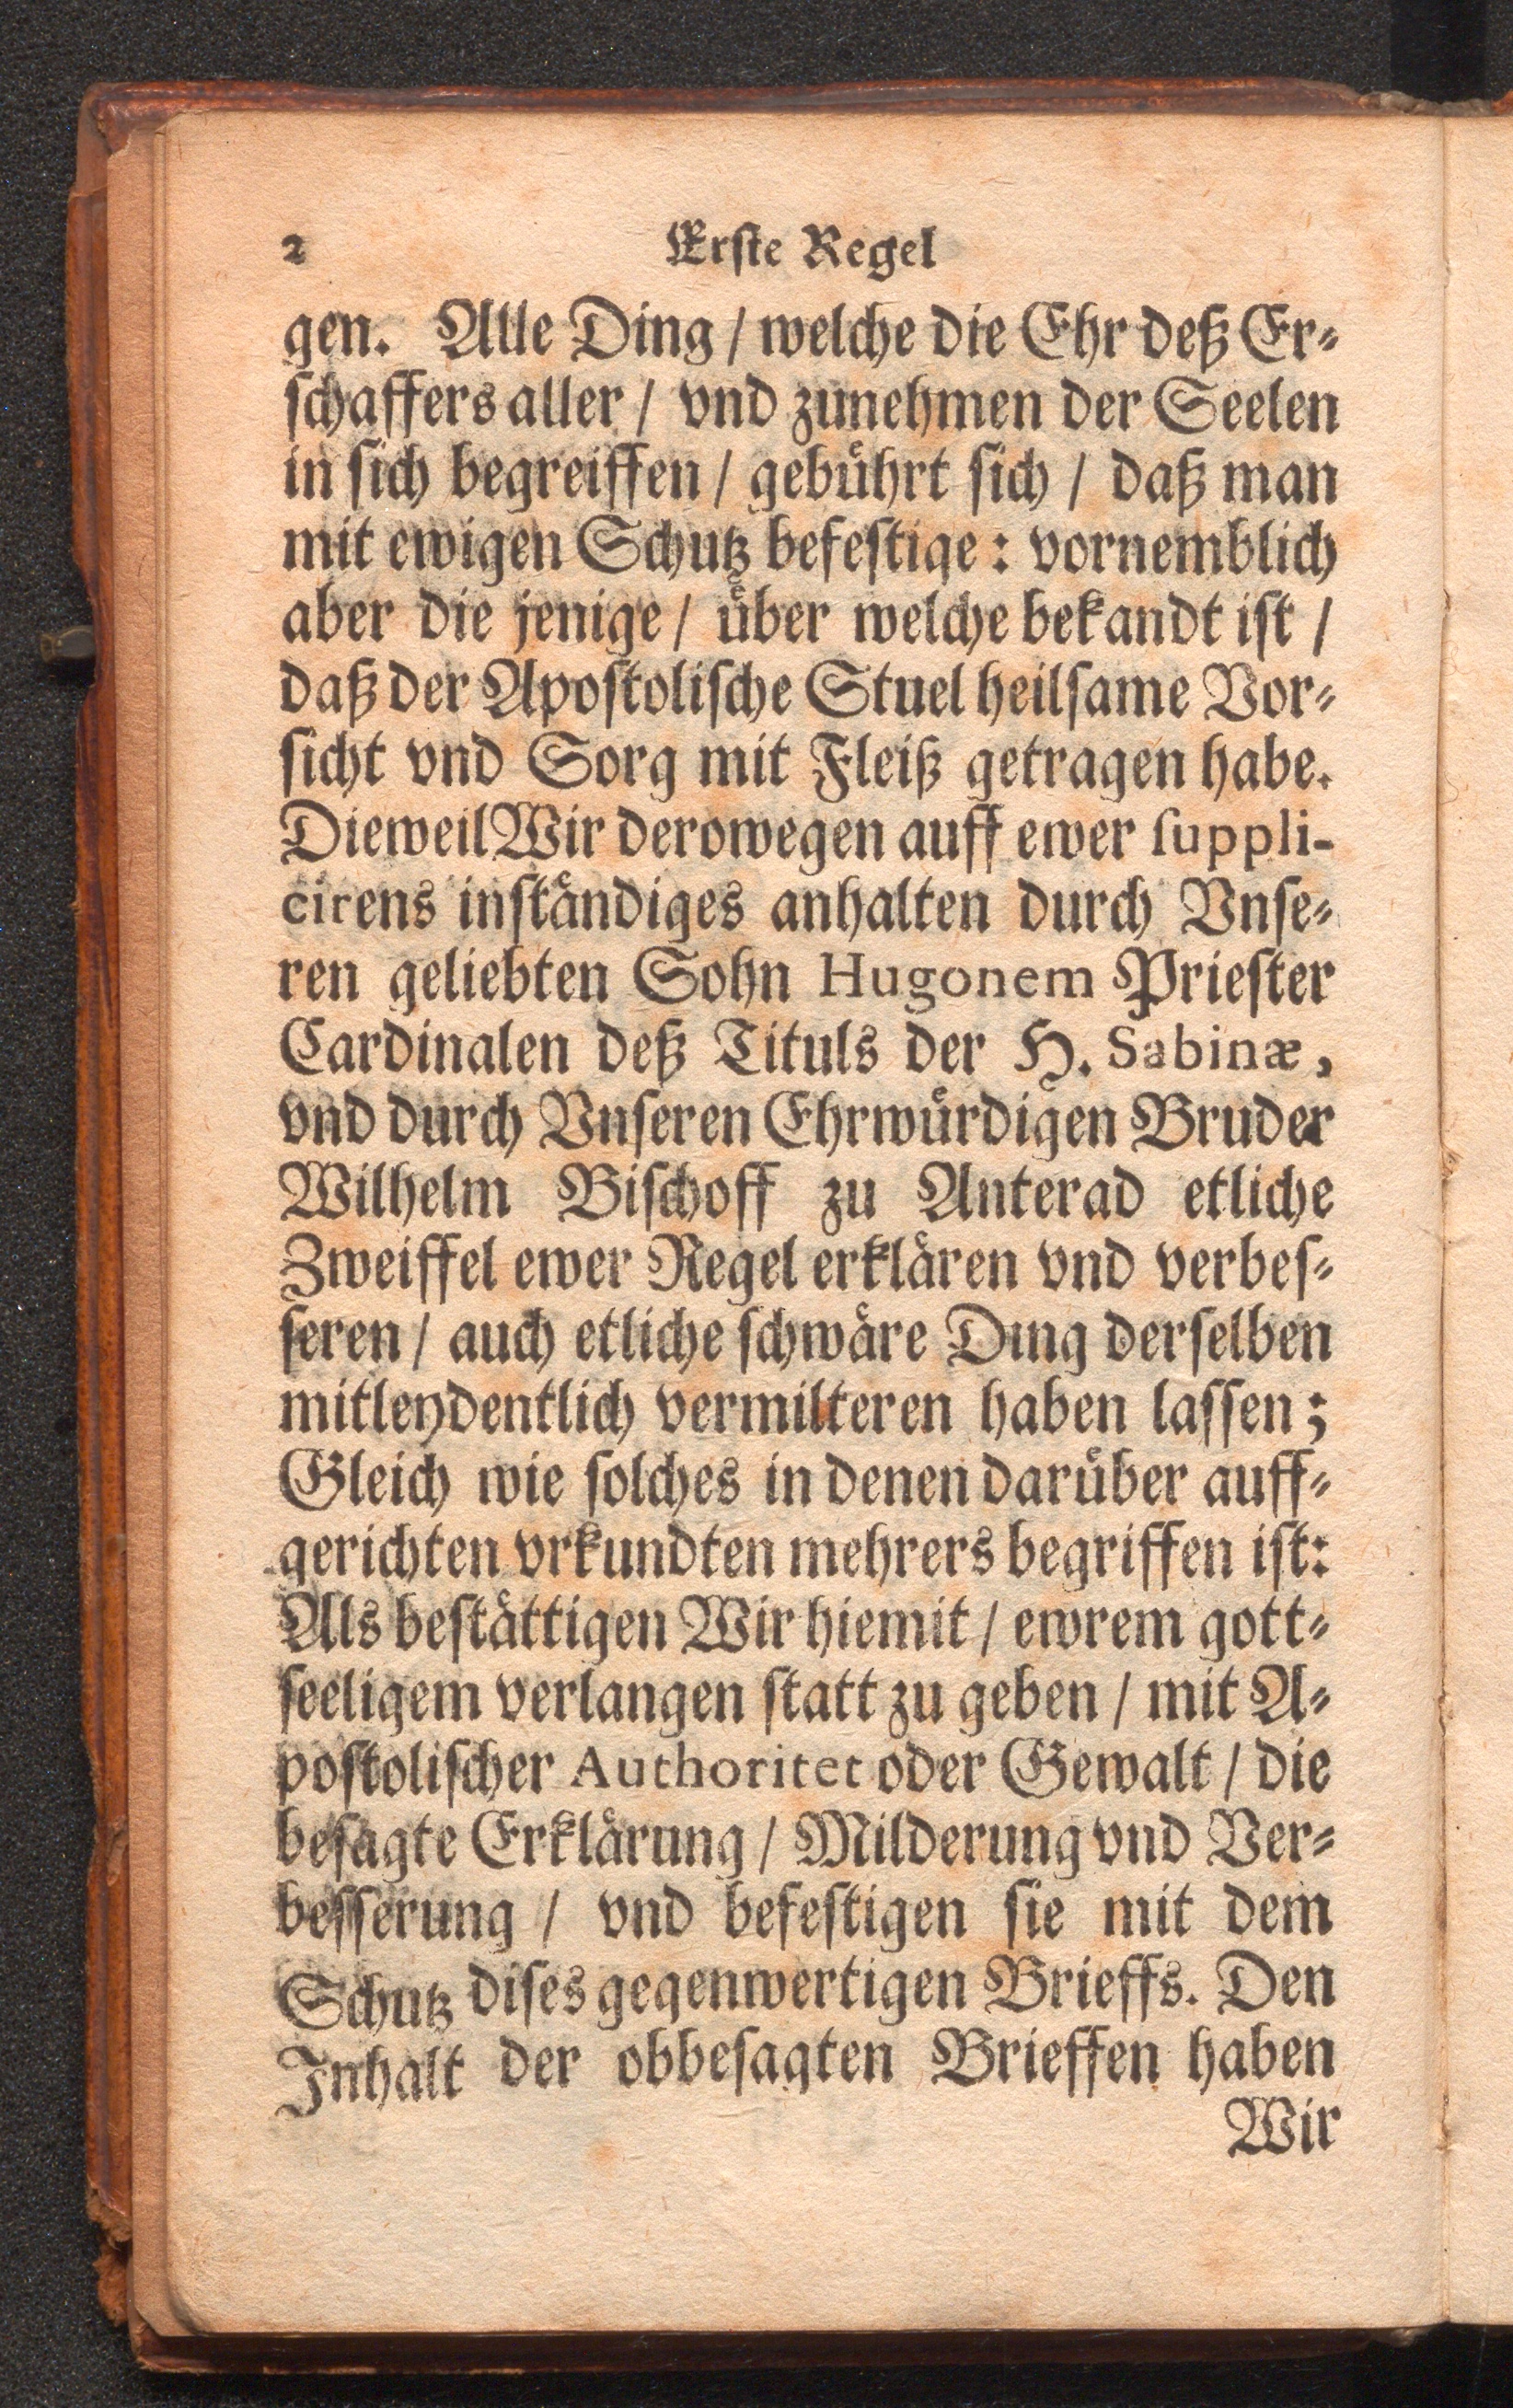 2 Erste Regel
gen. Alle Ding / welche die Ehr deß Er⸗
schaffers aller / vnd zunehmen der Seelen
in sich begreiffen / gebührt sich / daß man
mit ewigen Schutz befestige: vornemblich
aber die jenige / über welche bekandt ist /
daß der Apostolische Stuel heilsame Vor⸗
sicht vnd Sorg mit Fleiß getragen habe.
Dieweil Wir derowegen auff ewer suppli-
cirens inständiges anhalten durch Vnse⸗
ren geliebten Sohn Hugonem Priester
Cardinalen deß Tituls der H. Sabinæ,
vnd durch Vnseren Ehrwürdigen Bruder
Wilhelm Bischoff zu Anterad etliche
Zweiffel ewer Regel erklären vnd verbes⸗
seren / auch etliche schwäre Ding derselben
mitleydentlich vermilteren haben lassen;
Gleich wie solches in denen darüber auff⸗
gerichten vrkundten mehrers begriffen ist:
Als bestättigen Wir hiemit / ewrem gott⸗
seeligem verlangen statt zu geben / mit A⸗
postolischer Authoritet oder Gewalt / die
besagte Erklärung / Milderung vnd Ver⸗
besserung / vnd befestigen sie mit dem
Schutz dises gegenwertigen Brieffs. Den
Inhalt der obbesagten Brieffen haben
Wir